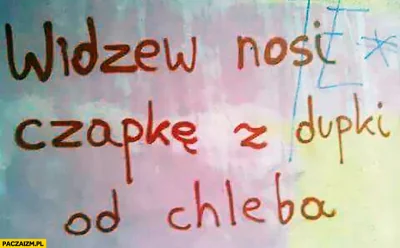 Widzew nosi
czapkę z dupki
od chleba
PACZAIZM.PL